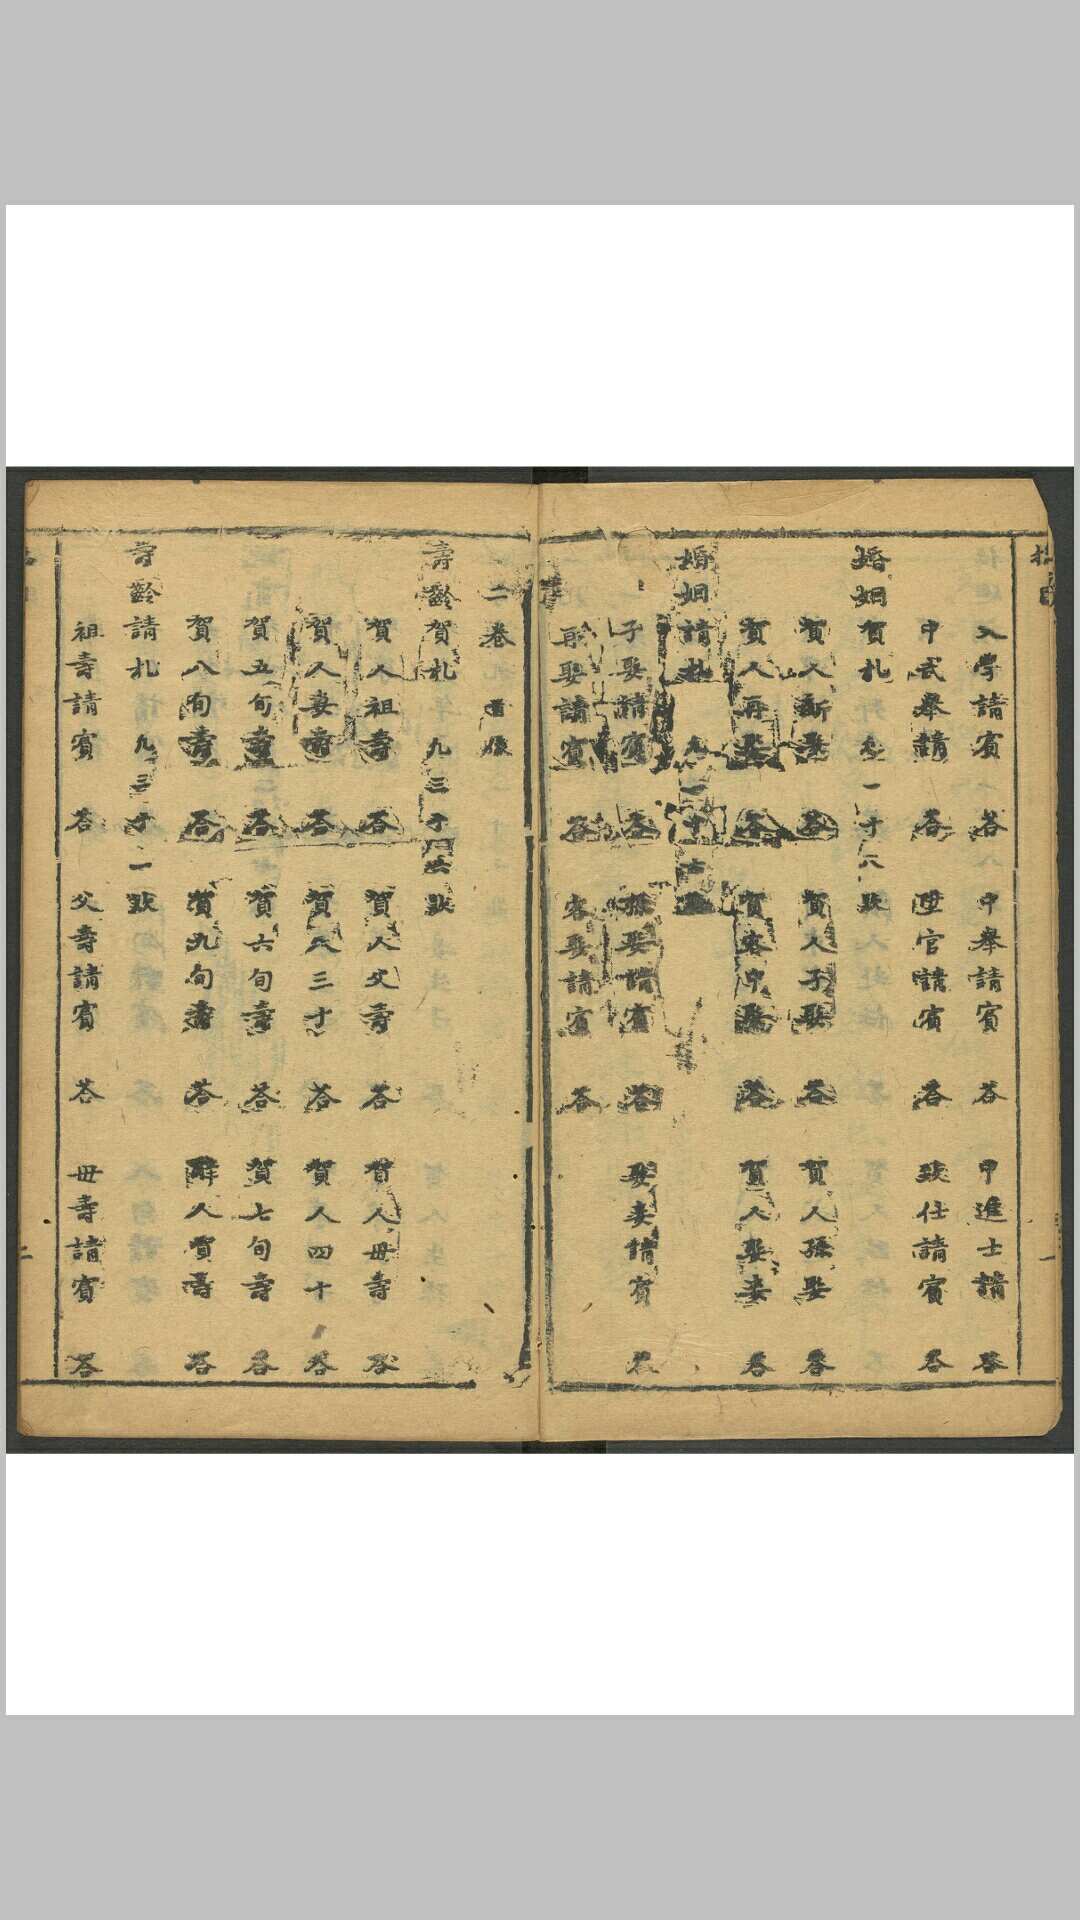 入學請賓 答 中舉請賓 答 中進士請 答
中武舉請 答 陞官請賓 答 致仕請賓 答
婚姻賀札 一十八款
賀人新娶 答 賀人子娶 答 賀人孫娶 答
賀人再娶 答 賀客中娶 答 賀人娶妾 答
婚姻請札
子娶請賓 答 孫娶請賓 答 娶妾請賓 答
再娶請賓 答 客娶請賓 答
二卷
壽齡賀札 凡三十六款
賀人祖壽 答 賀人父壽 答 賀人母壽 答
賀人妻壽 答 賀人三十 答 賀人四十 答
賀五旬壽 答 賀六旬壽 答 賀七旬壽 答
賀八旬壽 答 賀九旬壽 答 辭人賀壽 答
壽齡請札 凡三十一款
祖壽請賓 答 父壽請賓 答 母壽請賓 答